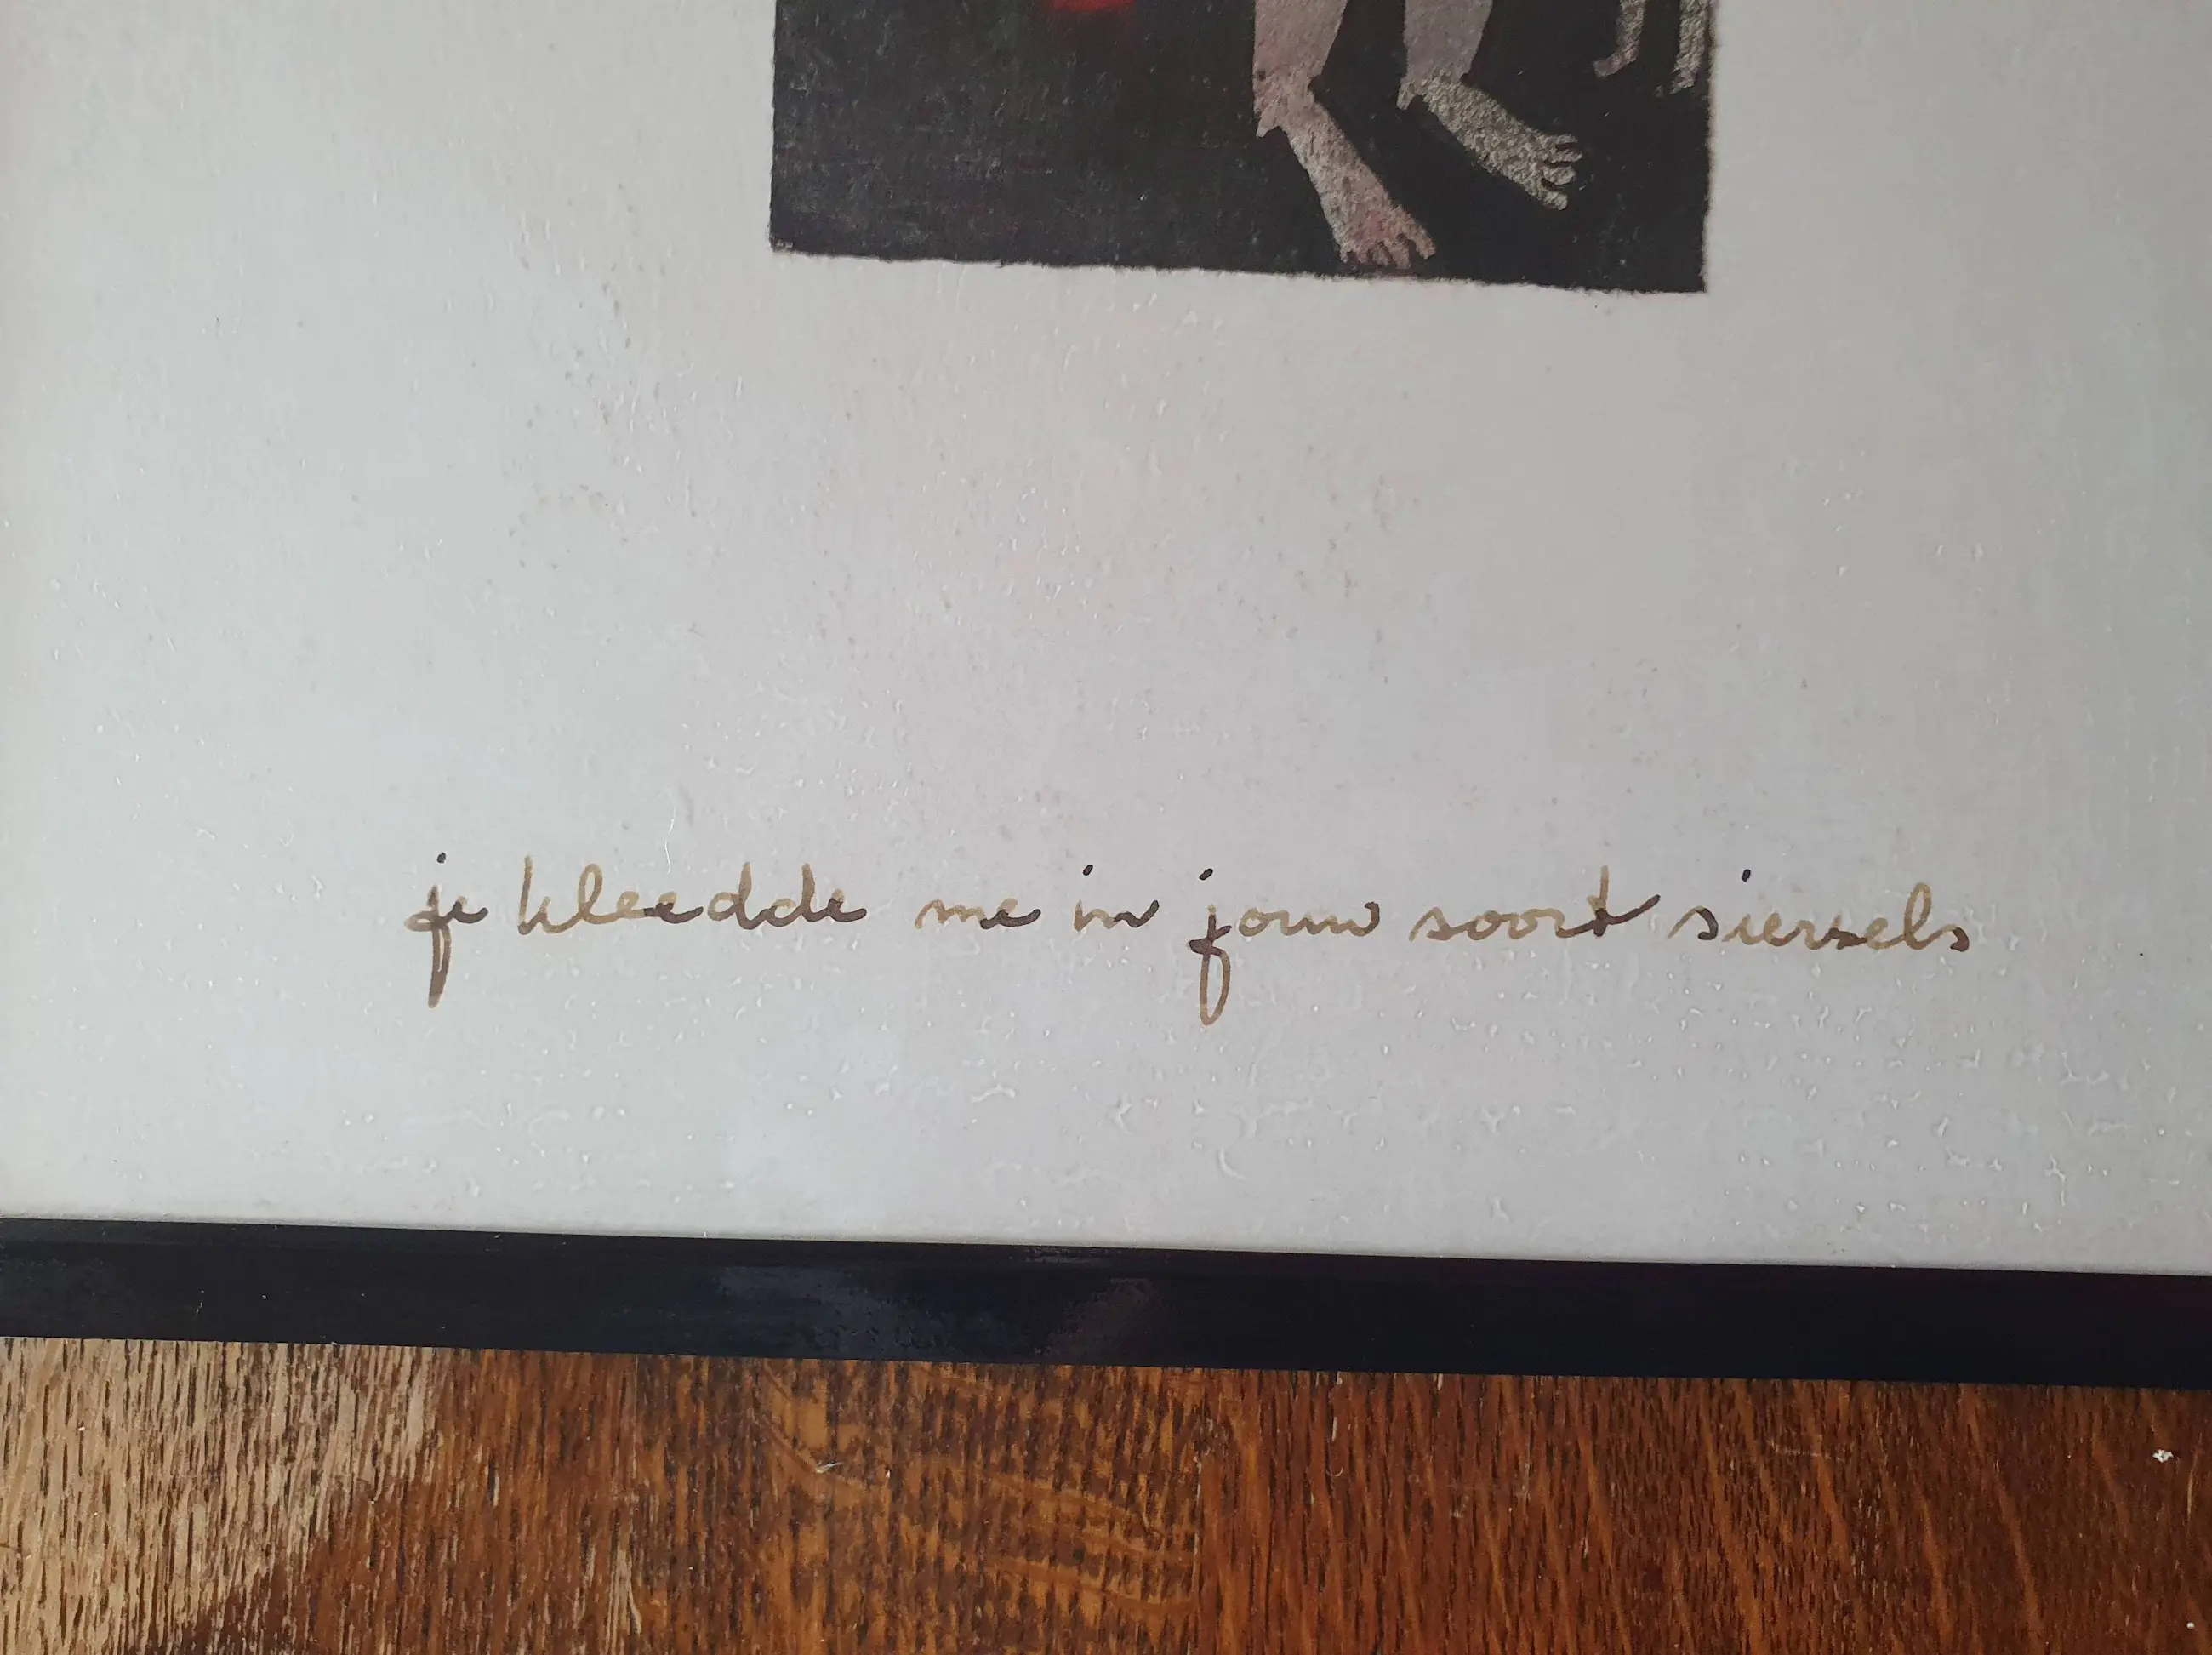 je kleedde me in jouw soort siersels